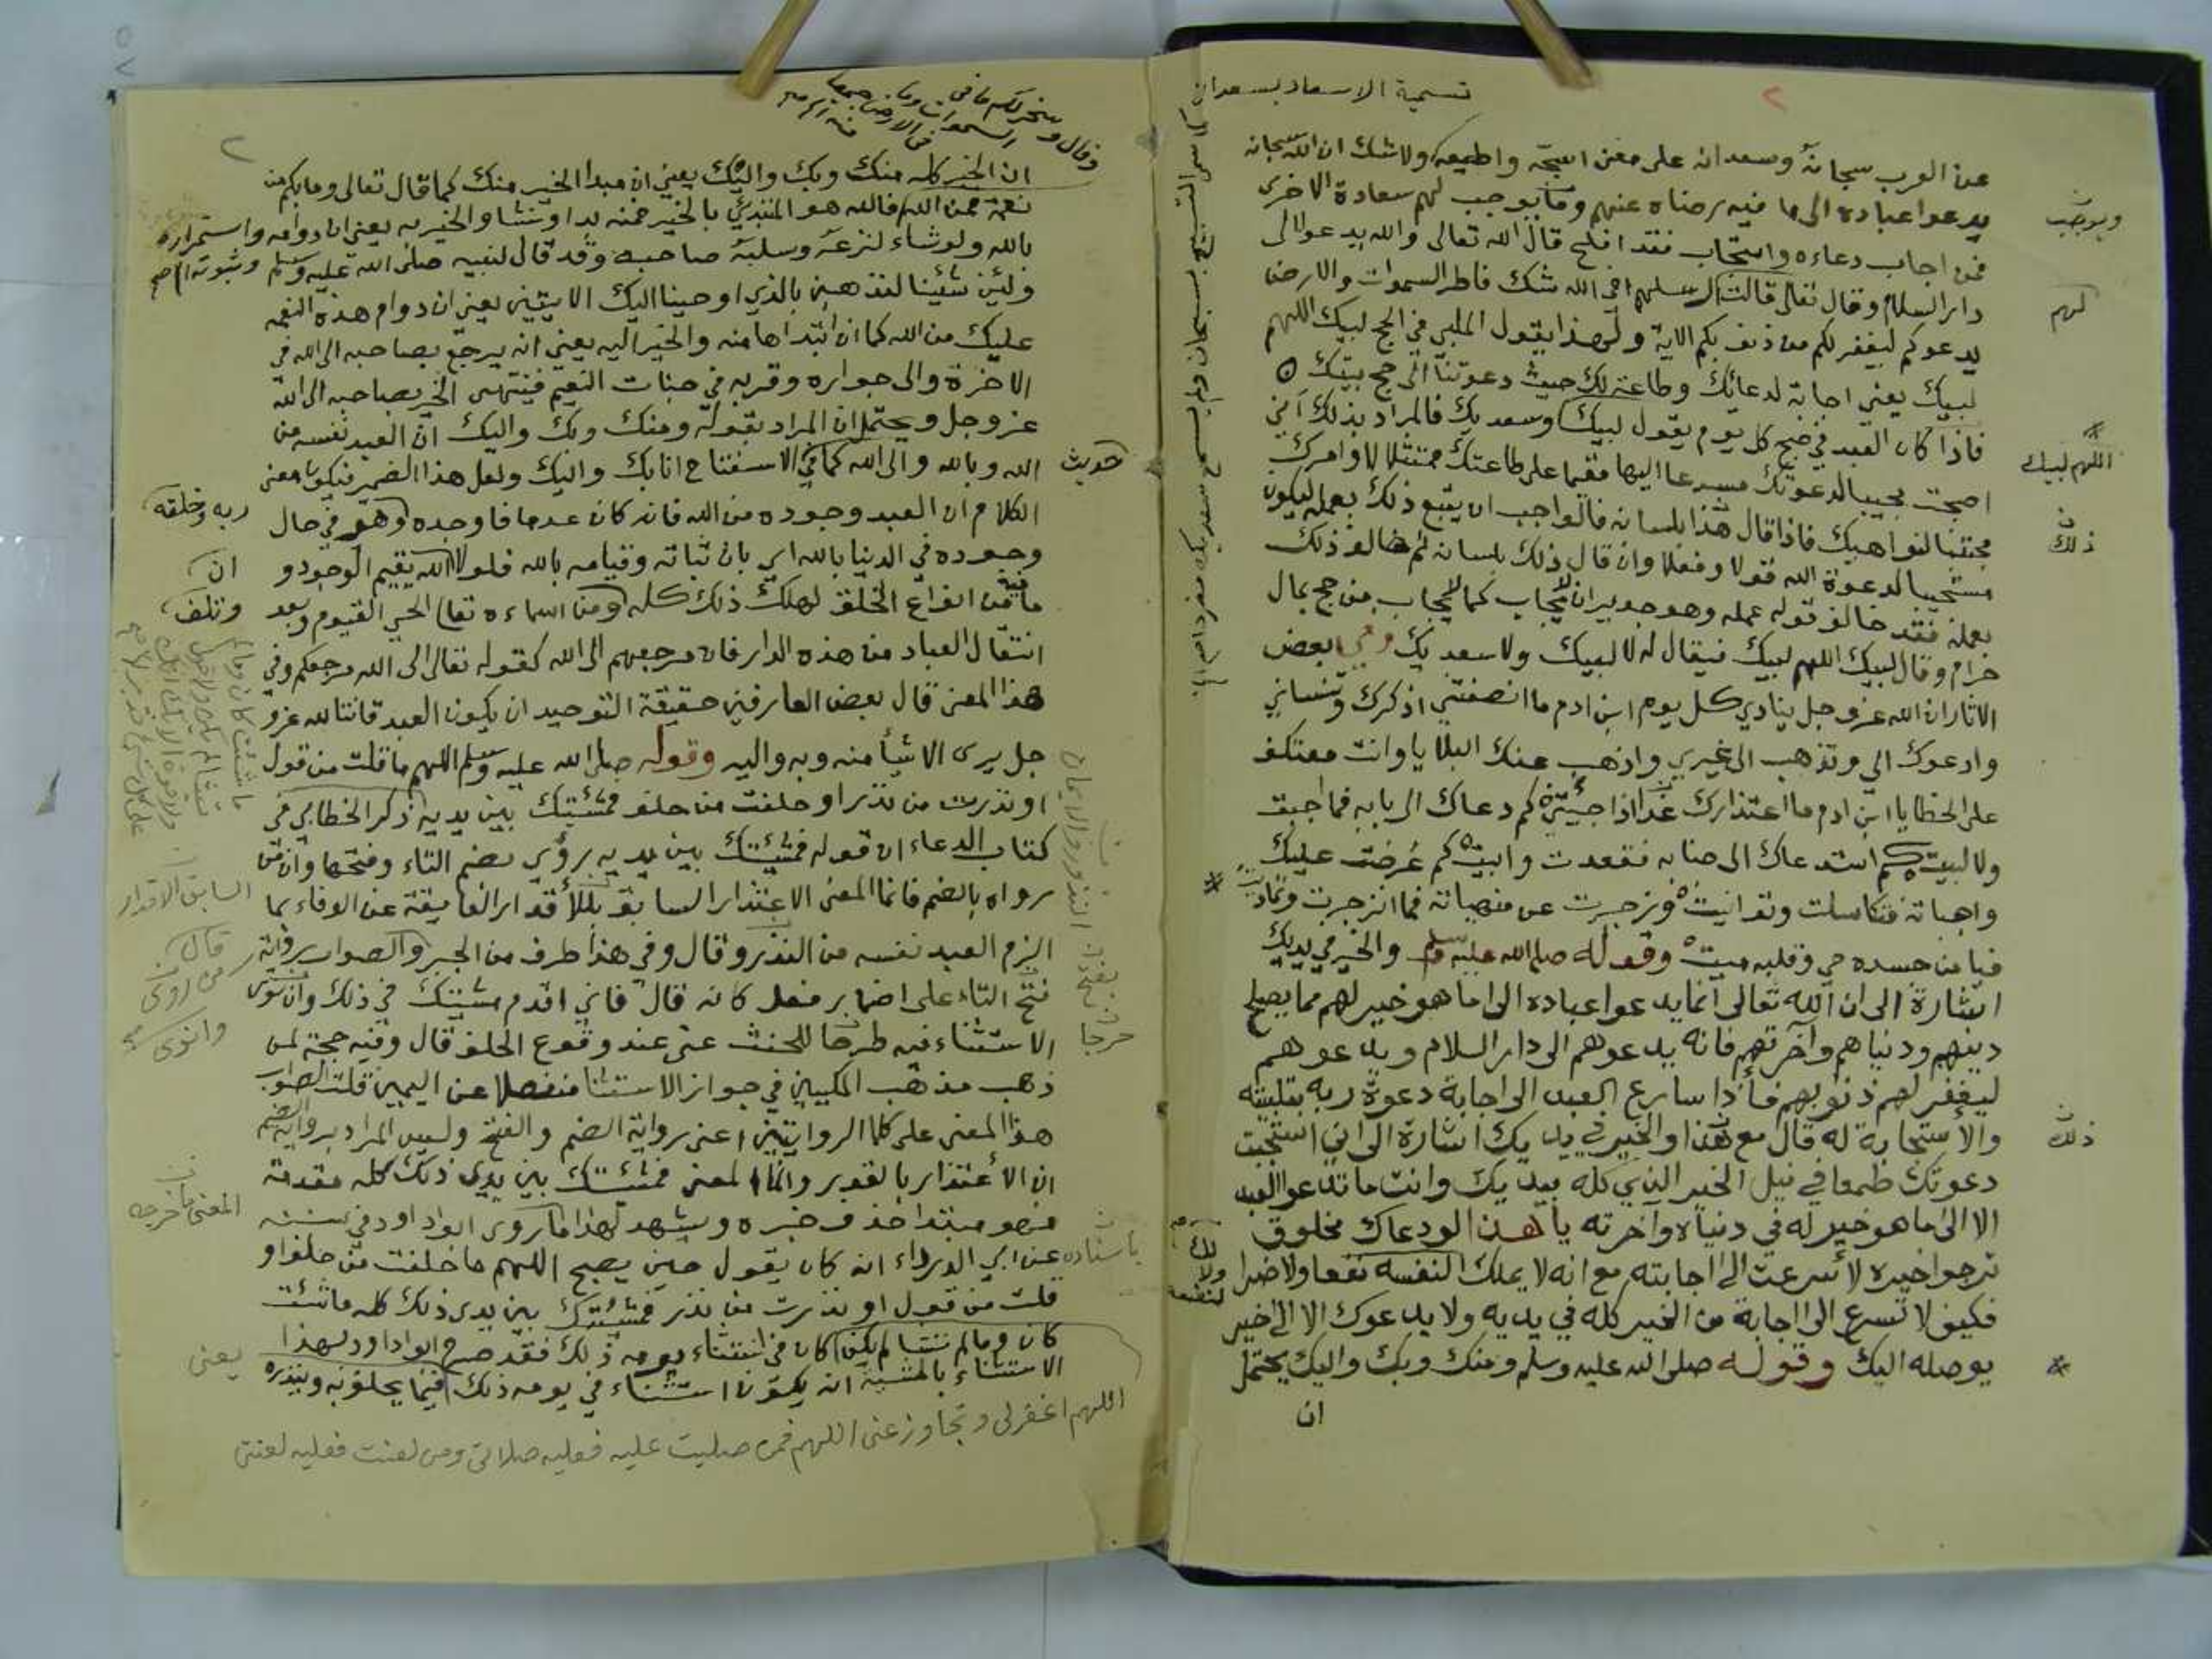 تسمية الاسعاد بسعدان
عن العرب سبحانه وسعدانه على معنى اسبحه واطيعه ولا شك ان الله سبحانه
يدعوا عباده الى ما فيه رضاه عنهم وما يوجب لهم سعادة الاخرى
ويوجب
فمن اجاب دعاءه واستجاب فقد افلح قال الله تعالى والله يدعو الى
دار السلام وقال تعالى قالت رسلهم افي الله شك فاطر السموات والارض
لهم
يدعوكم ليغفر لكم من ذنوبكم الاية ولهذا يقول الملبي في الحج لبيك اللهم
لبيك يعني اجابة لدعائك وطاعة لك حيث دعوتنا الى حج بيتك
فاذا كان العبد في صبح كل يوم يقول لبيك وسعديك فالمراد بذلك اني
اللهم لبيك
اصبحت مجيبا لدعوتك مسرعا اليها مقيما على طاعتك ممتثلا لاوامرك
مجتنبا لنواهيك فاذا قال هذا بلسانه فالواجب ان يتبع ذلك بعمله ليكون
ذلك
مستجيبا لدعوة الله قولا وفعلا وان قال ذلك بلسانه ثم خالف ذلك
بعمله فقد خالف قوله عمله وهو جدير ان لا يجاب كما لا يجاب من حج بمال
حرام وقال لبيك اللهم لبيك فيقال له لا لبيك ولا سعديك وفي بعض
الاثار ان الله عز وجل ينادي كل يوم ابن ادم ما انصفتني اذكرك وتنساني
وادعوك الي وتذهب الى غيري واذهب عنك البلايا وانت معتكف
على الخطايا ابن ادم ما اعتذارك غدا اذا جيتني كم دعاك الى بابه فما اجبت
ولا لبيت كم استدعاك الى جنابه فقعدت وابيت كم عرضت عليك
واجباته فتكاسلت وتوانيت وزجرت عن منهياته فما انزجرت وتماديت
فيا من جسده حي وقلبه ميت وقوله صلى الله عليه وسلم والخير في يديك
اشارة الى ان الله تعالى انما يدعوا عباده الى ما هو خير لهم مما يصلح
دينهم ودنياهم وآخرتهم فانه يدعوهم الى دار السلام ويدعوهم
ليغفر لهم ذنوبهم فاذا سارع العبد الى اجابة دعوة ربه بتلبيته
والاستجابة له قال مع هذا والخير في يديك اشارة الى اني استجبت
ذلك
دعوتك طمعا في نيل الخير الذي كله بيديك وانت ما تدعوا العبد
الا الى ما هو خير له في دنياه وآخرته يا هذا لو دعاك مخلوق
ترجوا خيره لأسرعت الى اجابته مع انه لا يملك لنفسه نفعا ولا ضرا
فكيف لا تسرع الى اجابة من الخير كله في يديه ولا يدعوك الا الى خير
يوصله اليك وقوله صلى الله عليه وسلم ومنك وبك واليك يحتمل
ان
وقال وسخر لكم ما في
السموات وما
في الارض جميعا
منه
ان الخير كله منك وبك واليك يعني ان مبدا الخير منك كما قال تعالى وما بكم من
نعمة فمن الله فالله هو المبتدئ بالخير فمنه بدا ونشا والخير به يعني ان دوامه واستمراره
وثبوته
بالله ولو شاء لنزعه وسلبه صاحبه وقد قال لنبيه صلى الله عليه وسلم
ولئن شئنا لنذهبن بالذي اوحينا اليك الايتين يعني ان دوام هذه النعم
عليك من الله كما ان ابتداها منه والخير اليه يعني انه يرجع بصاحبه الى الله في
الاخرة والى جواره وقربه في جنات النعيم فينتهي الخير بصاحبه الى الله
عز وجل ويحتمل ان المراد بقوله ومنك وبك واليك ان العبد نفسه من
الله وبالله والى الله كما في الاستفتاح انا بك واليك ولعل هذا الضمير فيكون معنى
حديث
الكلام ان العبد وجوده من الله فانه كان عدما فاوجده وهو في حال
ربه وخلقه
وجوده في الدنيا بالله اي بان ثباته وقيامه بالله فلولا الله يقيم الوجود و
ان
ما فيه من انواع الخلق لهلك ذلك كله ومن اسماءه تعالى الحي القيوم وبعد
وتلف
انتقال العباد من هذه الدار فان مرجعهم الى الله كقوله تعالى الى الله مرجعكم وفي
هذا المعنى قال بعض العارفين حقيقة التوحيد ان يكون العبد فانيا لله عز و
جل يرى الاشيأ منه وبه واليه وقوله صلى الله عليه وسلم اللهم ما قلت من قول
او نذرت من نذر او حلفت من حلف فمشيئتك بين يديه ذكر الخطابي في
كتاب الدعاء ان قوله فمشيئتك بين يديه يروى بضم التاء وفتحها وان من
رواه بالضم فانما المعنى الاعتذار السابق للأقدار العايقة عن الوفاء بما
السابق الاقدار
الزم العبد نفسه من النذر وقال وفي هذا طرف من الجبر والصواب رواية
قال
من روى
فتح التاء على اضمار فعل كانه قال فاني اقدم مشيئتك في ذلك وان نوى
وانوى
الاستثناء فيه طرحا للحنث عني عند وقوع الحلف قال وفيه حجة لمن
ذهب مذهب المكيين في جواز الاستثنا منفصلا عن اليمين قلت الصواب
هذا المعنى على كلا الروايتين اعني رواية الضم والفتح وليس المراد برواية الضم
ان الاعتذار بالقدر وانما المعنى فمشيئتك بين يدي ذلك كله مقدمة
فهو مبتدا حذف خبره ويشهد لهذا ما روى ابوداود في سننه
المعنى ما خرجه
باسناده عن ابي الدرداء انه كان يقول حين يصبح اللهم ما حلفت من حلف او
قلت من قول او نذرت من نذر فمشيئتك بين يدي ذلك كله ما شئت
كان وما لم تشا لم يكن كان في استثناء يومه ذلك فقد صرح ابوداود لهذا
الاستثناء بالمشيئة انه يكون استثناء في يومه ذلك فيما يحلف به وينذره
يعني
اللهم اغفر لي وتجاوز عني اللهم فمن صليت عليه فعليه صلاتي ومن لعنت فعليه لعنتي